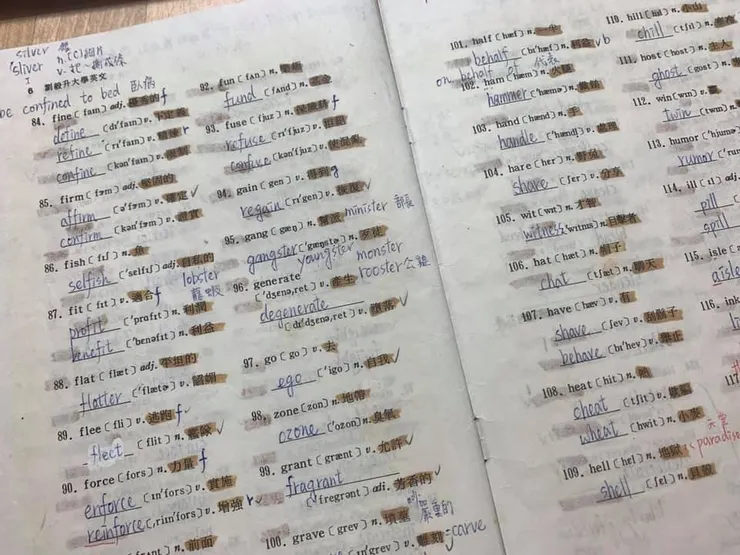 silver 銀
sliver n.[C] 細片
v. 把～
6 劉毅升大學英文
be confined to bed 臥病
84. fine (faɪn) adj.
define (dɪ'faɪn) v.
refine (rɪ'faɪn) v.
confine (kən'faɪn) v.
85. firm (fɝm) adj. 堅固的
affirm (ə'fɝm) v.
confirm (kən'fɝm) v.
86. fish (fɪʃ) n. 魚
selfish ('sɛlfɪʃ) adj. 自私的
lobster
龍蝦
87. fit (fɪt) v. 適合 f
profit ('prɑfɪt) n. 利潤
benefit ('bɛnəfɪt) n. 利益
88. flat (flæt) adj. 平坦的
flatter ('flætɚ) v.
89. flee (fli) v. 逃跑 f
fleet (flit) n.
90. force (fors) n. 力量 f
enforce (ɪn'fors) v. 實施
reinforce (,riɪn'fors) v. 增強 r ✓
n. 前面
92. fun (fʌn) n.
fund (fʌnd) n.
93. fuse (fjuz) n. f
refuse (rɪ'fjuz) v.
confuse (kən'fjuz) v.
94. gain (gen) v. 得到 g
regain (rɪ'gen) v. ✓
95. gang (gæŋ) n.
minister 部長
gangster ('gæŋstɚ) n. 歹徒
youngster
monster
rooster 公雞
96. generate
('dʒɛnə,ret) v. 產生
degenerate
(dɪ'dʒɛnə,ret) v. 墮落 ✓
97. go (go) v. 去
ego ('igo) n. 自我 ✓
98. zone (zon) n. 地帶
ozone ('ozon) n. 臭氧
99. grant (grænt) v. 允許 ✓
fragrant
('fregrənt) adj. 芳香的 ✓
100. grave (grev) n. 墳墓
嚴重的
v. 雕刻 carve
101. half (hæf) n.
behalf (bɪ'hæf) n. 利益 ✓ b
on behalf of 代表
102. ham (hæm) n. 火腿
hammer ('hæmɚ) n.
103. hand (hænd) n. 手
handle ('hændḷ) v. 處理
104. hare (hɛr) n. 野兔
share (ʃɛr) v. 分享
105. wit (wɪt) n. 才智
witness ('wɪtnɪs) n. 目擊者
106. hat (hæt) n. 帽子
chat (tʃæt) n. 聊天
107. have (hæv) v. 有
shave (ʃev) v. 刮鬍子
behave (bɪ'hev) v. 舉止
108. heat (hit) n. 熱
cheat (tʃit) v. 欺騙
wheat (hwit) n. 小麥
天堂
109. hell (hɛl) n. 地獄 paradise
shell (ʃɛl) n. 貝殼
110. hill (hɪl) n. 小山
chill (tʃɪl) n.
111. host (host) n. 主人
ghost (gost) n.
112. win (wɪn) v. 贏
twin (twɪn) n.
113. humor ('hjumɚ)
rumor
114. ill (ɪl) adj.
pill
spill
115. isle
aisle
116. ink
117.